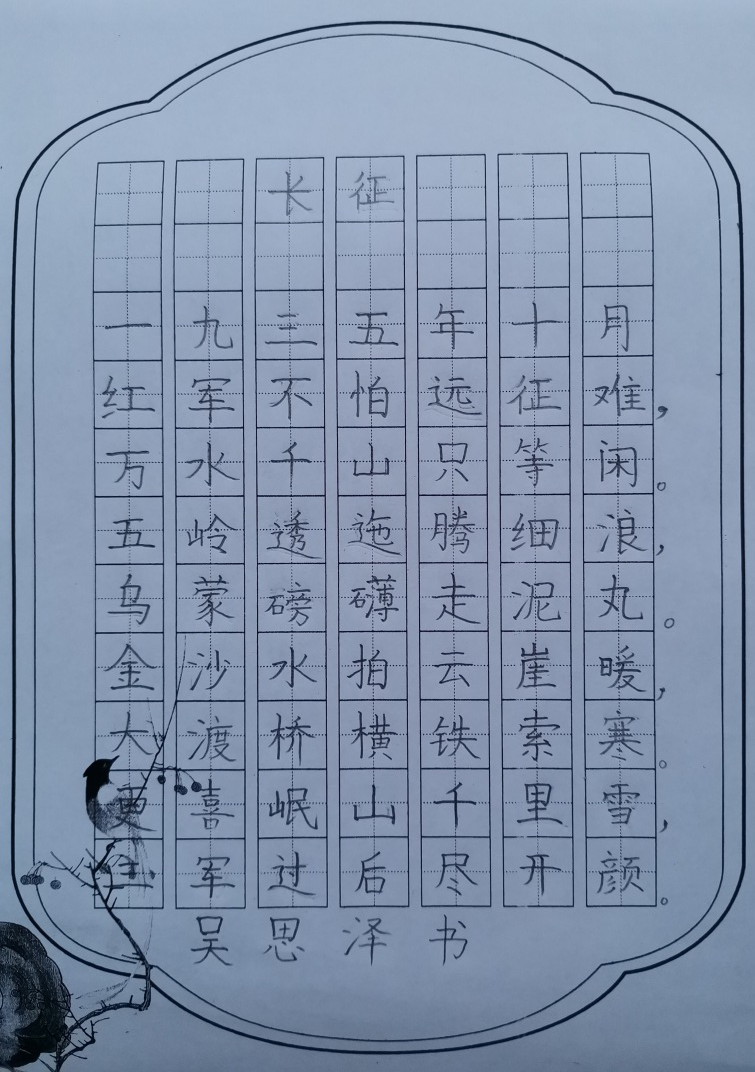 长征
一九三五年十月
红军不怕远征难，
万水千山只等闲。
五岭透迤腾细浪，
乌蒙磅礴走泥丸。
金沙水拍云崖暖，
大渡桥横铁索寒。
更喜岷山千里雪，
三军过后尽开颜。
吴思泽书